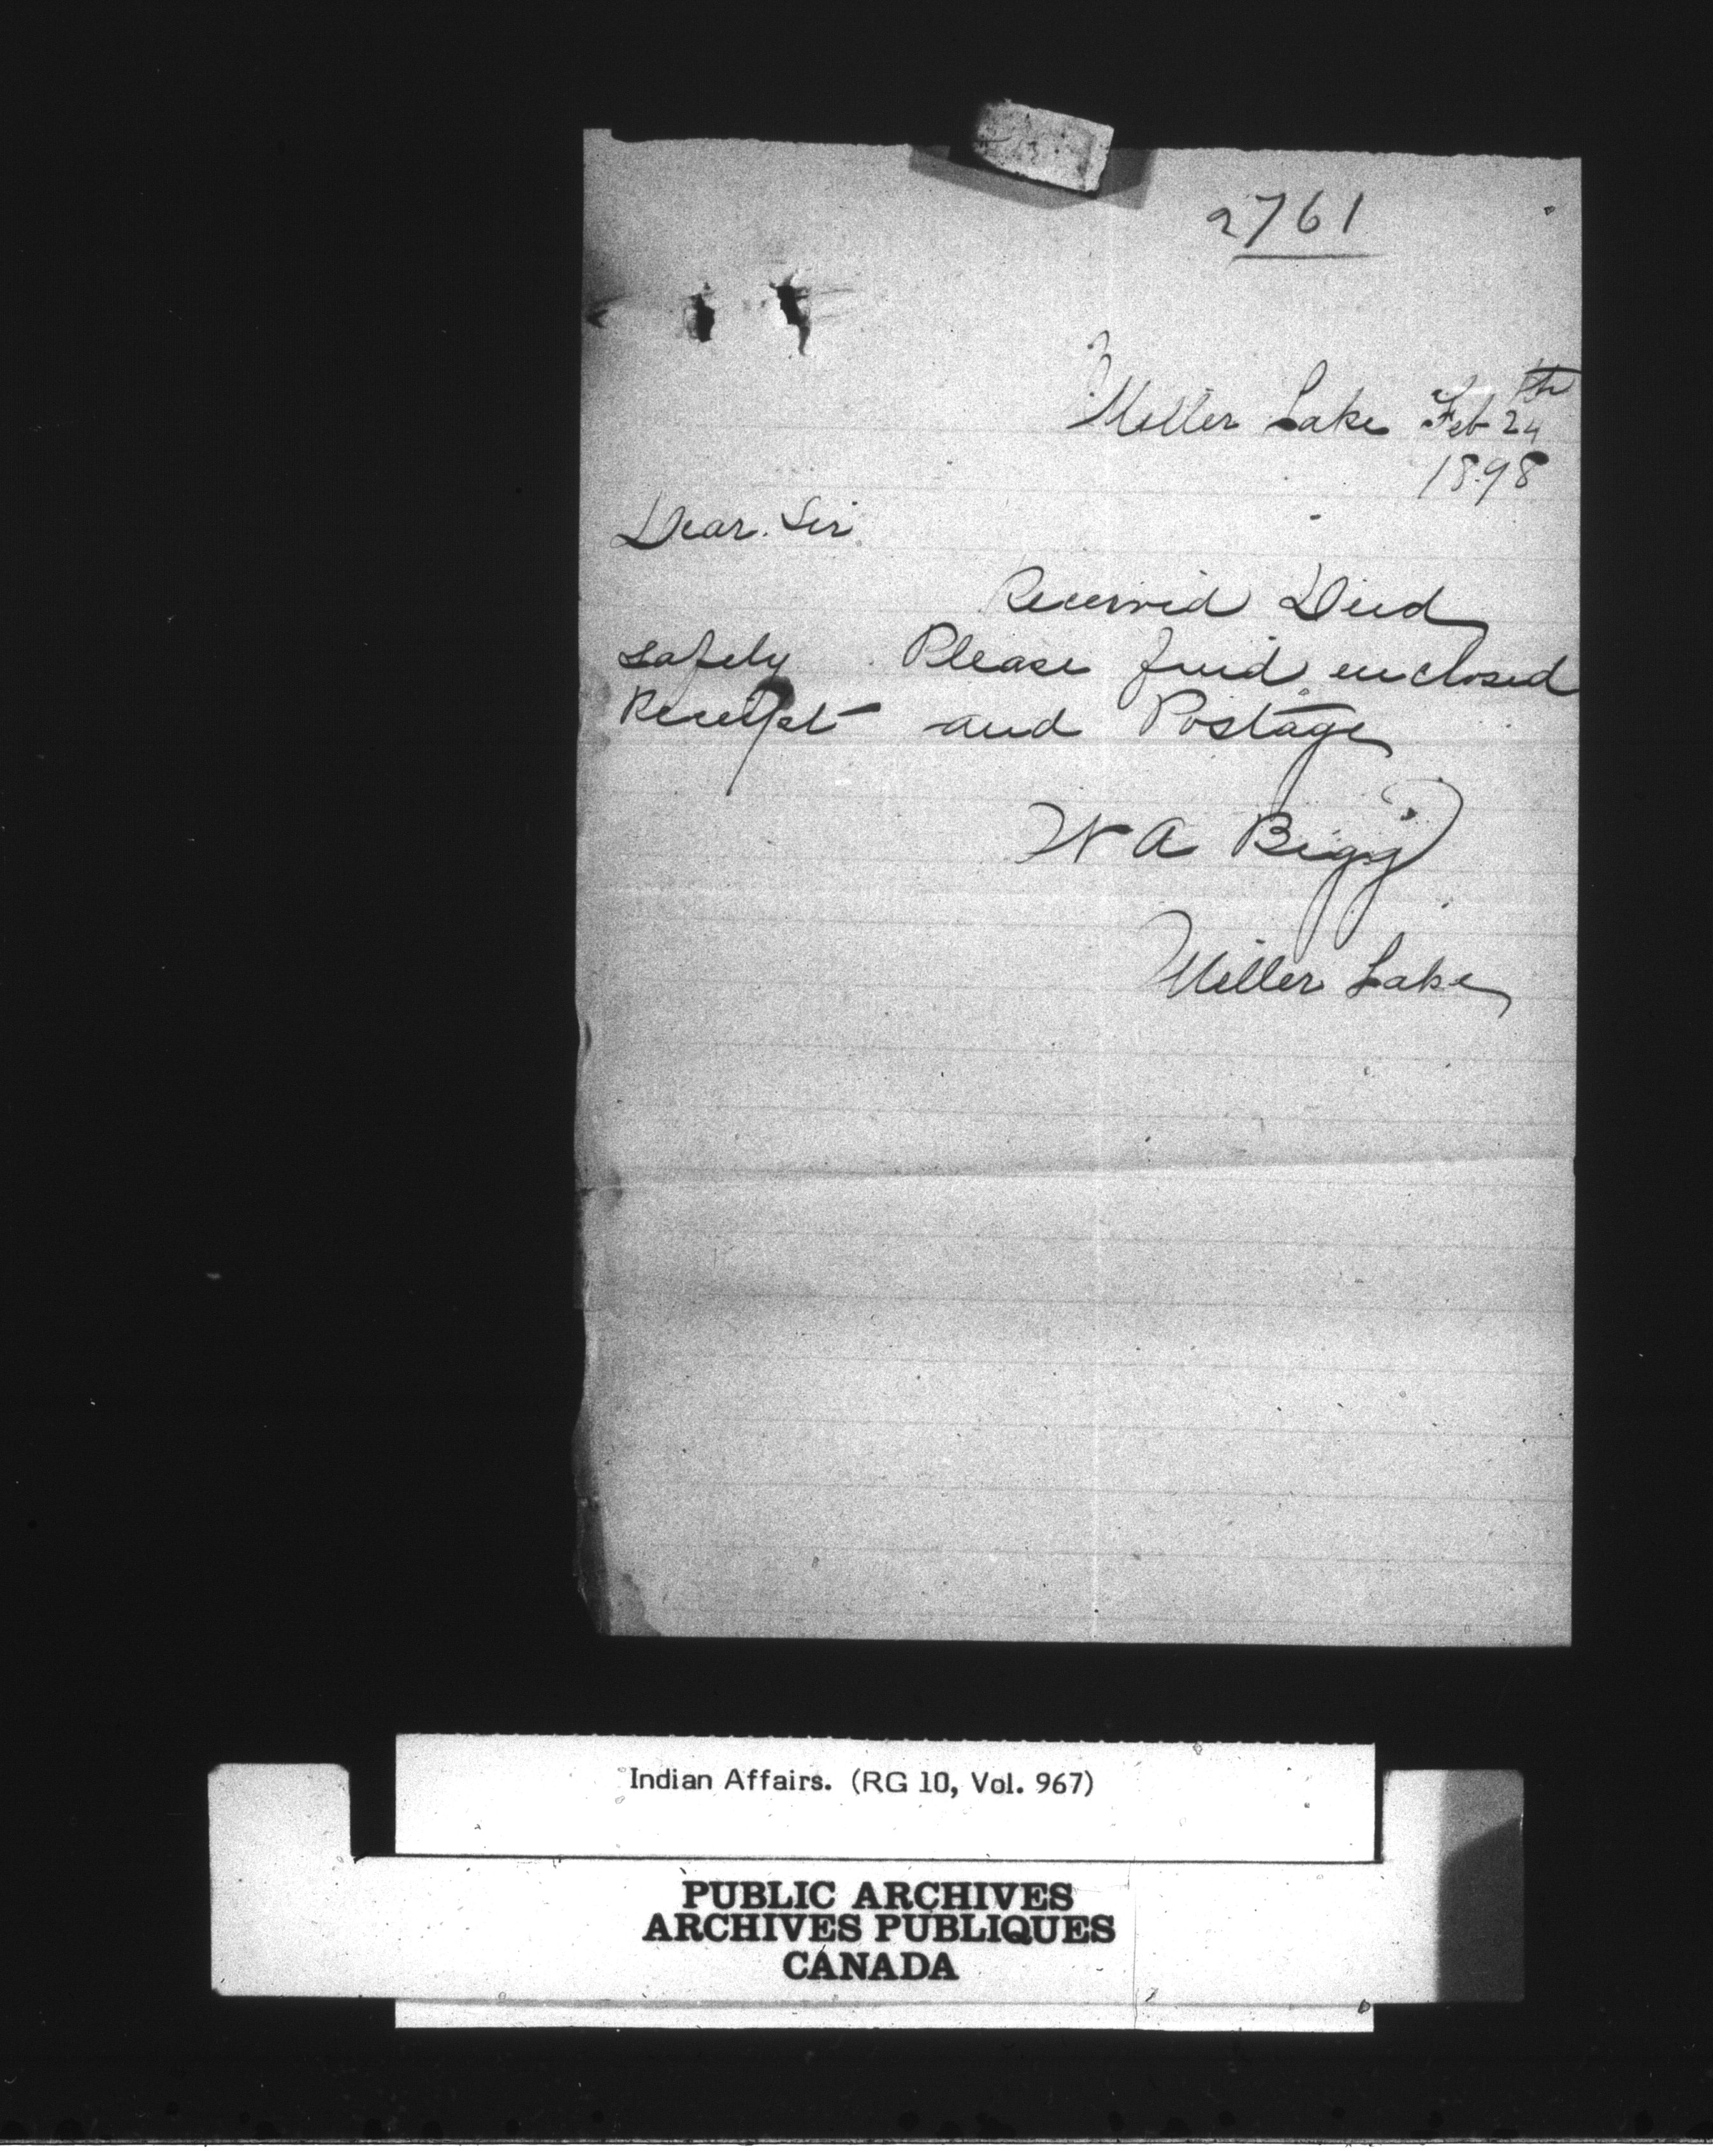 2761
Miller Lake Feb 24th
1898
Dear Sir
Received Deed
safely Please find enclosed
Receipt and Postage
W A Bigg
Miller Lake
Indian Affairs. (RG 10, Vol. 967)
PUBLIC ARCHIVES
ARCHIVES PUBLIQUES
CANADA